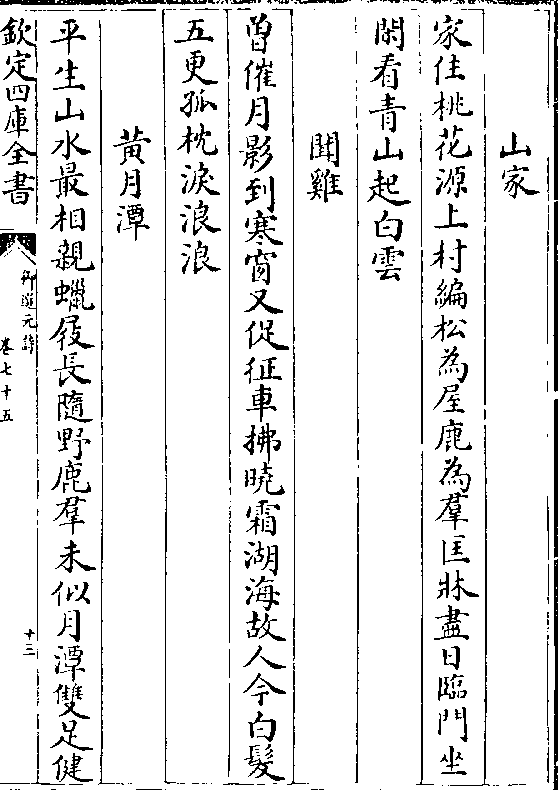 山家
家住桃花源上村編松為屋鹿為羣匡牀盡日臨門坐
閑看青山起白雲
聞雞
曽催月影到寒窗又促征車拂曉霜湖海故人今白髪
五更孤枕淚浪浪
黃月潭
平生山水最相親蠟屐長隨野鹿羣未似月潭雙足健
欽定四庫全書
御選元詩
卷七十五
十三